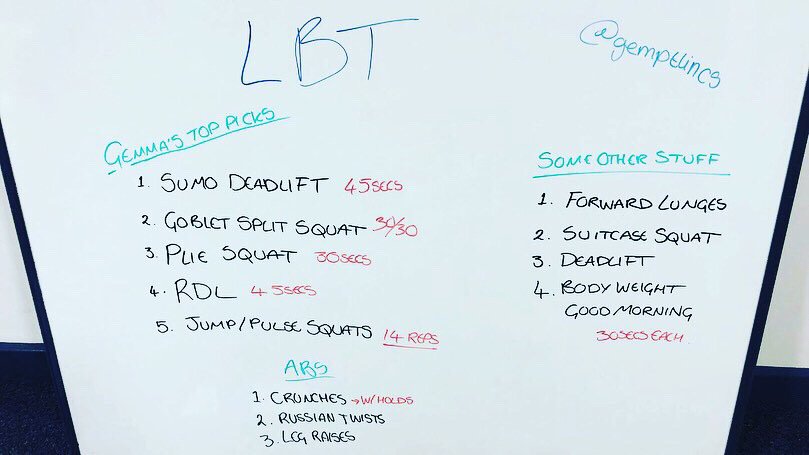 LBT
@gemptlincs
GEMMA'S TOP PICKS
1. SUMO DEADLIFT 45SECS
2. GOBLET SPLIT SQUAT 30/30
3. PLIE SQUAT 30SECS
4. RDL 45SECS
5. JUMP/PULSE SQUATS 14 REPS
SOME OTHER STUFF
1. FORWARD LUNGES
2. SUITCASE SQUAT
3. DEADLIFT
4. BODY WEIGHT
GOOD MORNING
30SECS EACH
ABS
1. CRUNCHES → W/HOLDS
2. RUSSIAN TWISTS
3. LEG RAISES